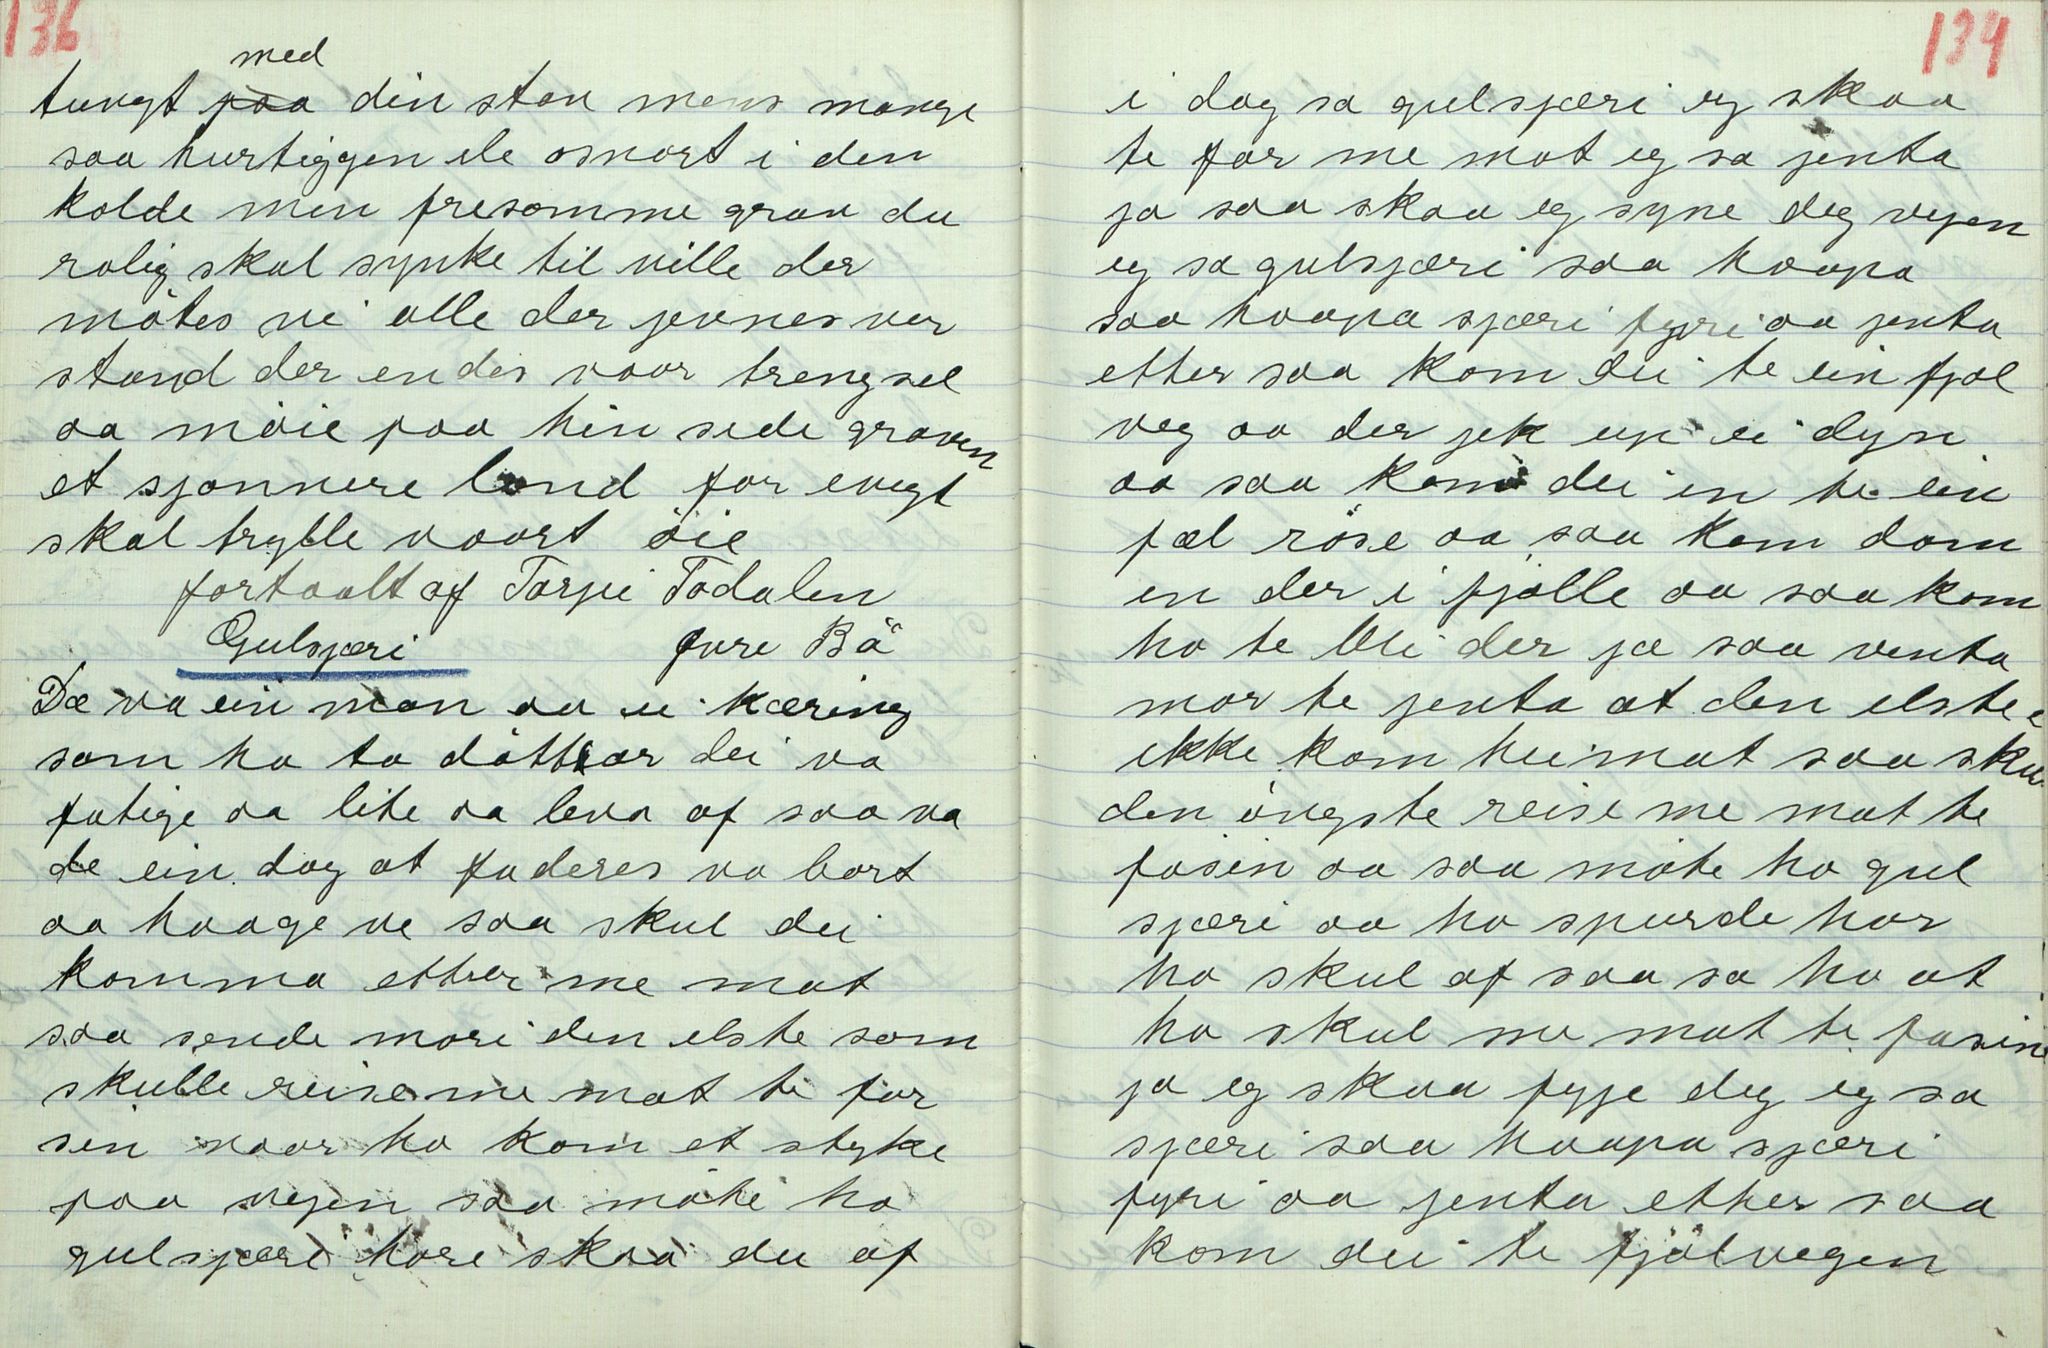 136
med
tungt paa din stav mens mange
saa hurtiggen ile osnart i den
kolde men fresomme grav du
rolig skal synke til ville der
mötes vi alle der jevnes ver
stand der endes voor trengsel
aa möie paa hin side graven
et sjonnere land for evegt
skal trylle voort öie
fortaalt af Torjei Todalen
Gulsjæri övre Bö
Dæ va ein man aa ei kæring
som ha to dötthar dei va
fatige aa lite aa leva af saa va
de ein dag at faderes va bort
aa haage ve saa skul dei
komma etther me mat
saa sende mori den elste som
skulle reise me mat te far
sin naar ho kom et styke
paa vegen saa möte ho
gulsjæri hore skaa du af
134
i dag sa gulsjæri eg skaa
te far me mat eg sa jenta
ja saa skaa eg syne deg vegen
eg sa gulsjæri saa haapa
saa haapa sjæri fyri aa jenta
etther saa kom dei te ein fjöl
veg aa der jek up ei dyn
aa saa kom dei in te ein
fæl röse aa saa kom dom
in der i fjölle aa saa kom
ho te bli der ja saa venta
mor te jenta at den elste
ikke kom heimat saa skul
den öngste reise me mat te
fasin aa saa möte ho gul
sjæri aa ho spurde hor
ho skul af saa sa ho at
ho skul me mat te fasin
ja eg skaa fyje deg eg sa
sjæri saa haapa sjæri
fyri aa jenta ether saa
kom dei te fjölvegen